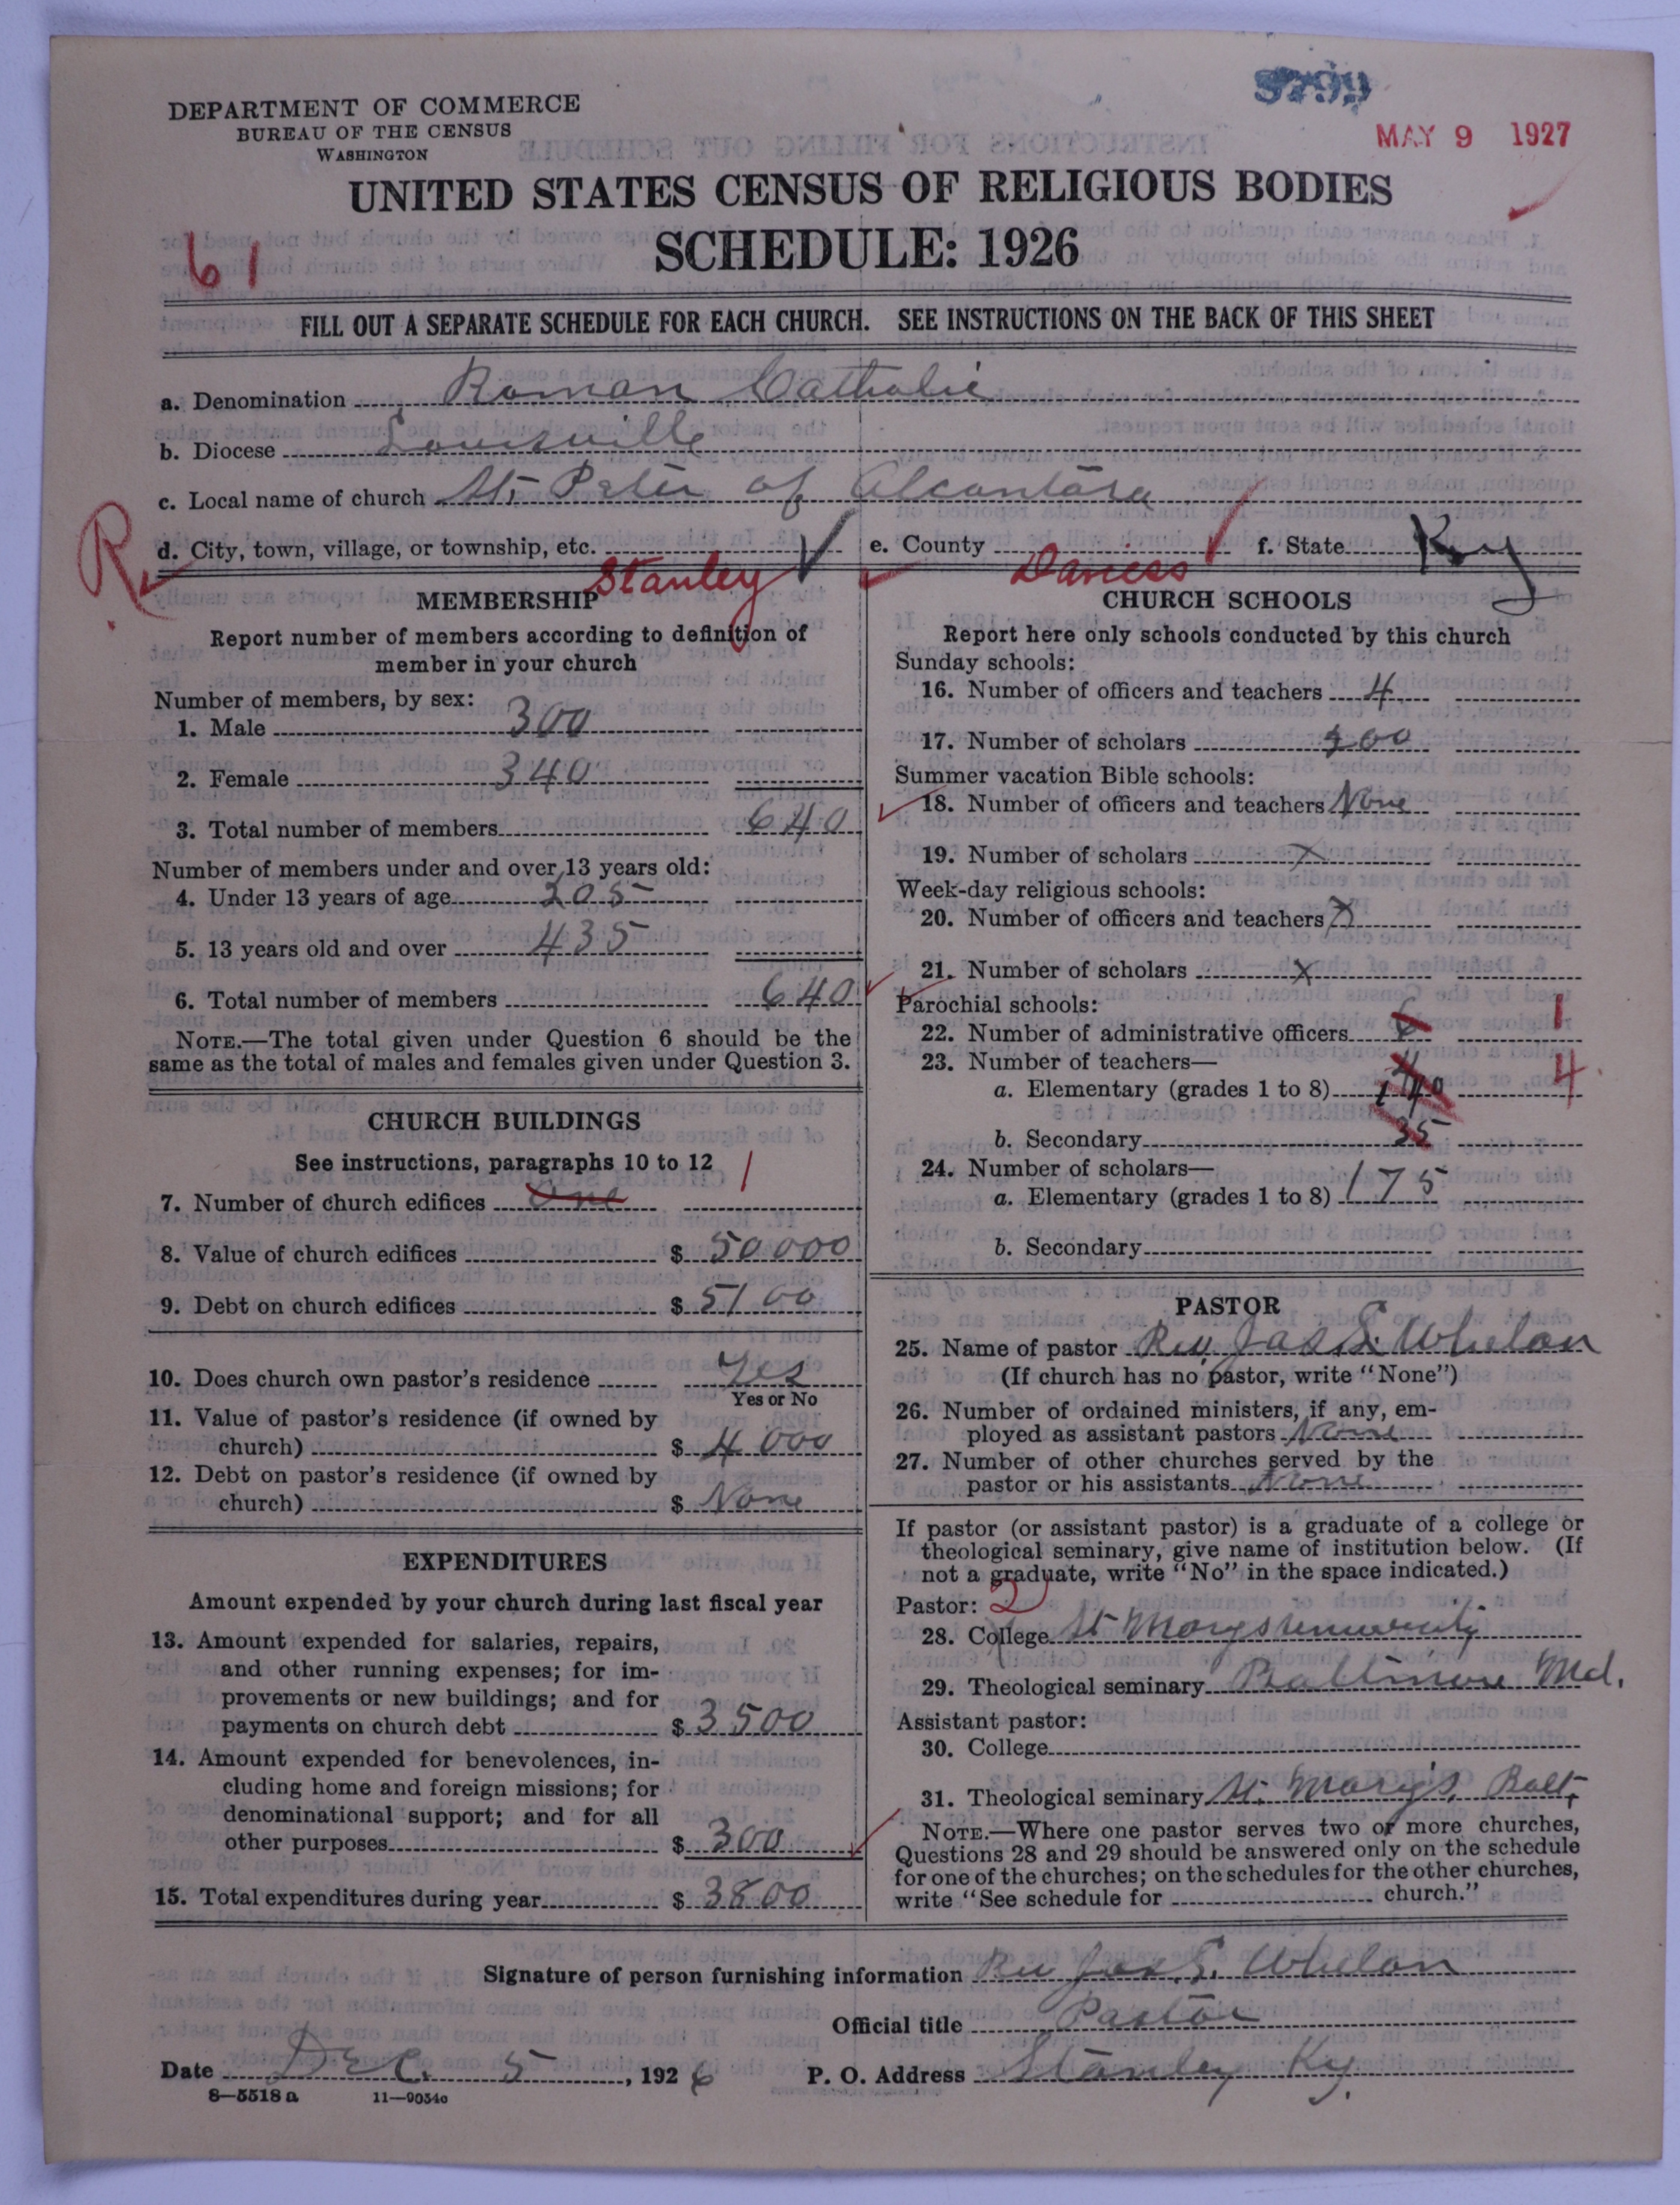 DEPARTMENT OF COMMERCE
BUREAU OF THE CENSUS
WASHINGTON
MAY 9 1927
UNITED STATES CENSUS OF RELIGIOUS BODIES
SCHEDULE: 1926
61
FILL OUT A SEPARATE SCHEDULE FOR EACH CHURCH. SEE INSTRUCTIONS ON THE BACK OF THIS SHEET
a. Denomination Roman Catholic
b. Diocese Louisville
c. Local name of church St. Peter of Alcantara
R
d. City, town, village, or township, etc. Stanley
e. County Daviess f. State Ky
MEMBERSHIP
Report number of members according to definition of
member in your church
Number of members, by sex:
1. Male 300
2. Female 340
3. Total number of members 640
Number of members under and over 13 years old:
4. Under 13 years of age 205
5. 13 years old and over 435
6. Total number of members 640
NOTE.—The total given under Question 6 should be the
same as the total of males and females given under Question 3.
CHURCH BUILDINGS
See instructions, paragraphs 10 to 12
7. Number of church edifices One 1
8. Value of church edifices $ 50000
9. Debt on church edifices $ 5100
10. Does church own pastor's residence Yes
Yes or No
11. Value of pastor's residence (if owned by
church) $ 4000
12. Debt on pastor's residence (if owned by
church) $ None
EXPENDITURES
Amount expended by your church during last fiscal year
13. Amount expended for salaries, repairs,
and other running expenses; for im-
provements or new buildings; and for
payments on church debt $ 3500
14. Amount expended for benevolences, in-
cluding home and foreign missions; for
denominational support; and for all
other purposes $ 300
15. Total expenditures during year $ 3800
CHURCH SCHOOLS
Report here only schools conducted by this church
Sunday schools:
16. Number of officers and teachers 4
17. Number of scholars
Summer vacation Bible schools:
18. Number of officers and teachers None
19. Number of scholars x
Week-day religious schools:
20. Number of officers and teachers x
21. Number of scholars x
Parochial schools:
22. Number of administrative officers 1
23. Number of teachers—
a. Elementary (grades 1 to 8) 4
b. Secondary
24. Number of scholars—
a. Elementary (grades 1 to 8) 175
b. Secondary
PASTOR
25. Name of pastor Rev. Jas S. Whelan
(If church has no pastor, write "None")
26. Number of ordained ministers, if any, em-
ployed as assistant pastors None
27. Number of other churches served by the
pastor or his assistants None
If pastor (or assistant pastor) is a graduate of a college or
theological seminary, give name of institution below. (If
not a graduate, write "No" in the space indicated.)
Pastor: 2
28. College St Marys University
29. Theological seminary Baltimore Md.
Assistant pastor:
30. College
31. Theological seminary St. Mary's, Balt.
NOTE.—Where one pastor serves two or more churches,
Questions 28 and 29 should be answered only on the schedule
for one of the churches; on the schedules for the other churches,
write "See schedule for church."
Signature of person furnishing information Rev Jas. S. Whelan
Official title Pastor
Date Dec. 5, 1926 P. O. Address Stanley Ky.
8—5518 a 11—9054c